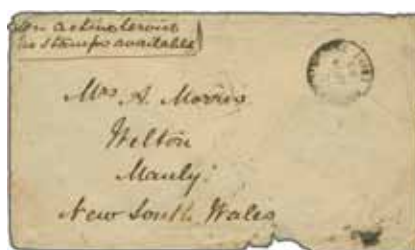 On active service
no stamps available
Mrs A. Morris
Welton
Manly
New South Wales